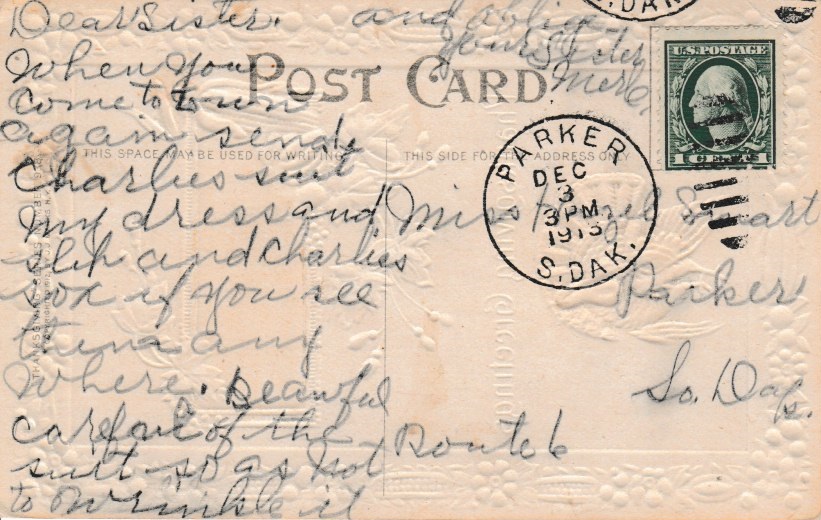 Dear Sister.
When you
come to town
again send
Charlies suit
my dress and
slip and Charlies
sox if you see
them any
where. be awful
careful of the
suit so as not
to wrinkle it
and oblige
Your Sister
POST CARD
THIS SPACE MAY BE USED FOR WRITING
THIS SIDE FOR THE ADDRESS ONLY
U.S. POSTAGE
1 CENT 1
S. DAK.
PARKER
DEC
3
3 PM
1913
S. DAK.
Miss Smart
Parker
So. Dak.
Route 6